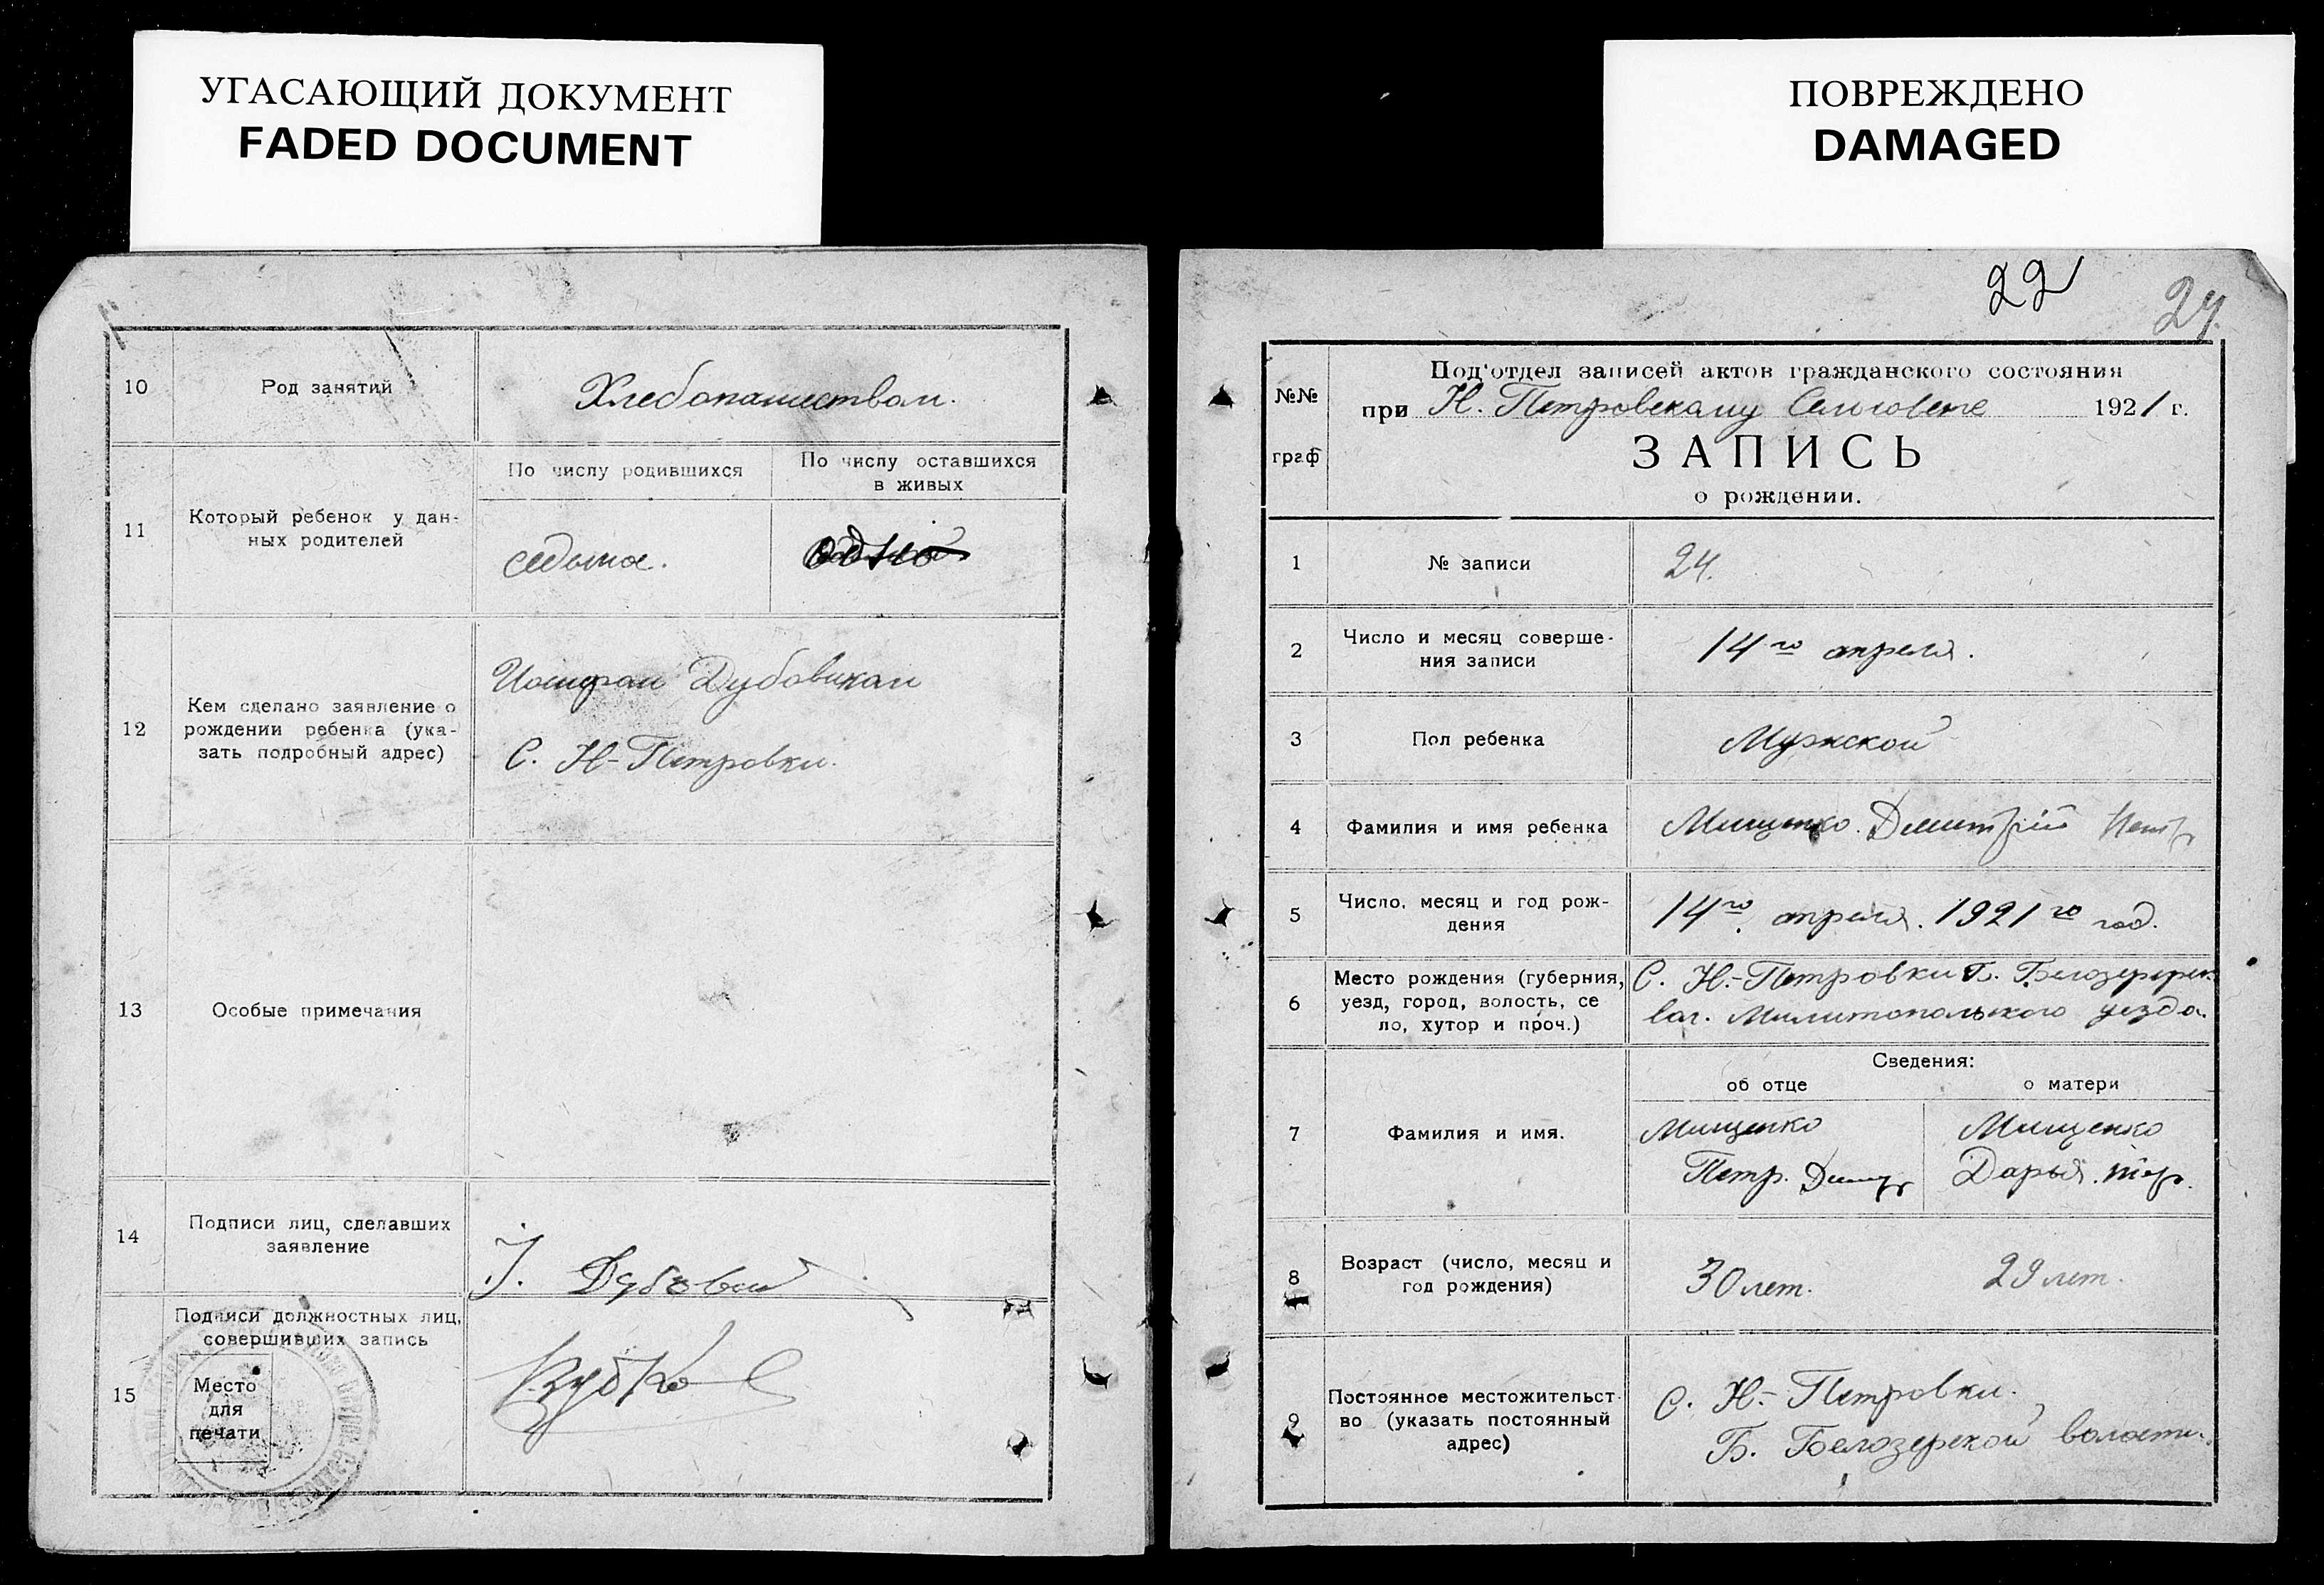 УГАСАЮЩИЙ ДОКУМЕНТ
FADED DOCUMENT
ПОВРЕЖДЕНО
DAMAGED
10
Род занятий
Хлебопашеством.
11
Который ребенок у дан-
ных родителей
По числу родившихся
По числу оставшихся
в живых
седьмое.
12
Кем сделано заявление о
рождении ребенка (ука-
зать подробный адрес)
С. Н-Петровки.
13
Особые примечания
14
Подписи лиц, сделавших
заявление
Дубовой
15
Подписи должностных лиц,
совершивших запись
Место
для
печати
22
24.
№№
граф
Под'отдел записей актов гражданского состояния
при Н. Петровскому 1921 г.
ЗАПИСЬ
о рождении.
1
№ записи
24.
2
Число и месяц соверше-
ния записи
14го апреля.
3
Пол ребенка
Мужской
4
Фамилия и имя ребенка
Мищенко. Дмитрий Петр
5
Число, месяц и год рож-
дения
14го апреля. 1921го год.
6
Место рождения (губерния,
уезд, город, волость, се
ло, хутор и проч.)
С. Н.-Петровки Б. Белозерск
вол. Милитопольского уезда.
7
Фамилия и имя.
Сведения:
об отце
о матери
Мищенко
Петр.
Мищенко
Дарья.
8
Возраст (число, месяц и
год рождения)
30 лет.
29 лет.
9
Постоянное местожительст-
во (указать постоянный
адрес)
С. Н.-Петровки.
Б. Белозерской волости.